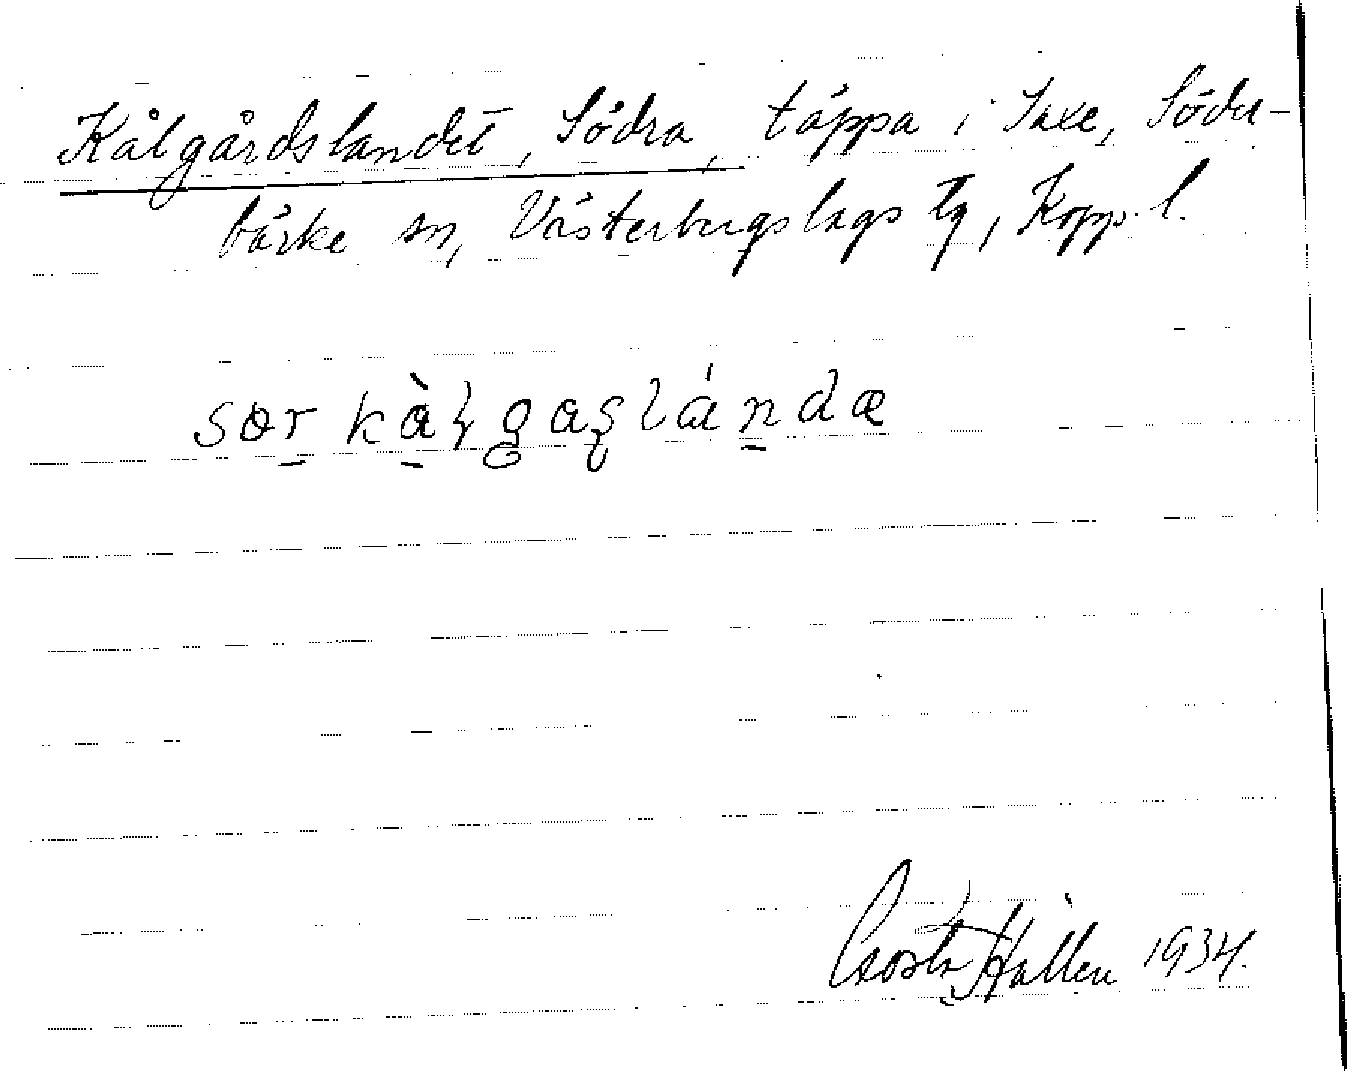 Kålgårdslandet, Södra, täppa i Saxe, Söder-
bärke sn, Västerbergslags tg, Kopp. l.
Gösta Hallén 1934.